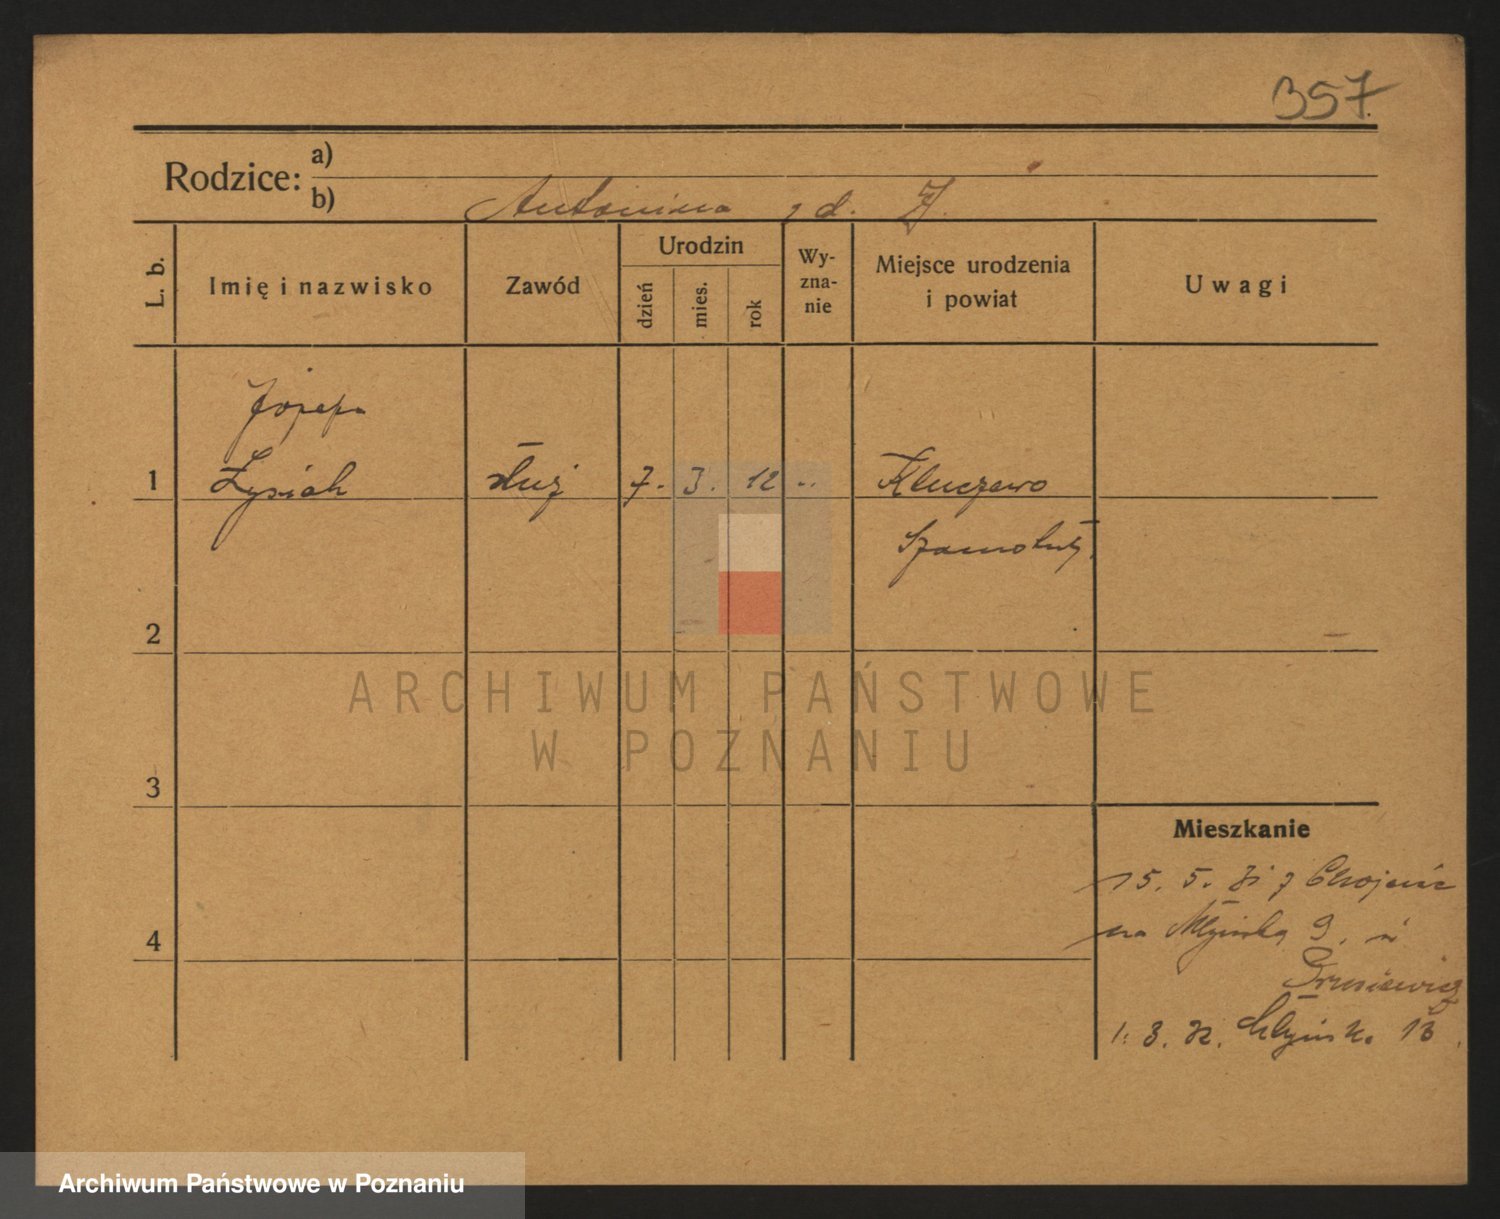 357.
Rodzice: a)
b) Antonina zd. Ż.
L. b.
Imię i nazwisko
Zawód
Urodzin
dzień
mies.
rok
Wy-
zna-
nie
Miejsce urodzenia
i powiat
Uwagi
Józefa
1 Łysiak służ 7. 3. 12 Kluczewo
Szamotuły
2
ARCHIWUM PAŃSTWOWE
W POZNANIU
3
Mieszkanie
15. 5. 31 z
4
na Młyńską 9.
1. 3. 32. Młyńsk. 13
Archiwum Państwowe w Poznaniu